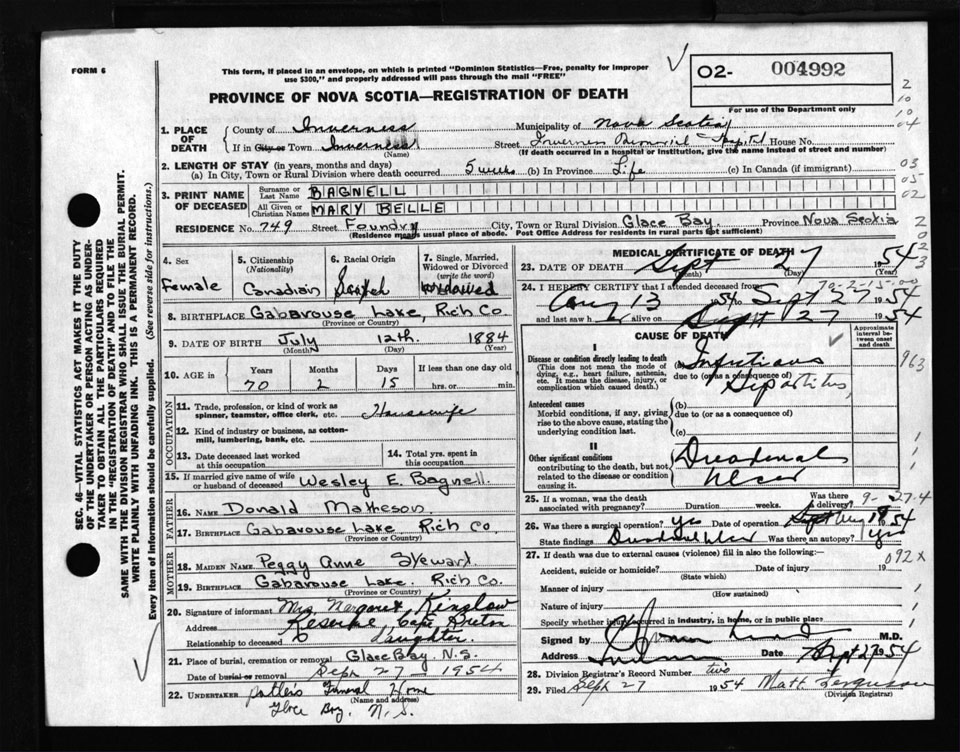 FORM 6
This form, if placed in an envelope, on which is printed "Dominion Statistics—Free, penalty for improper
use $300," and properly addressed will pass through the mail "FREE"
O2- 004992
For use of the Department only
PROVINCE OF NOVA SCOTIA—REGISTRATION OF DEATH
1. PLACE OF DEATH
County of Inverness
Municipality of Nova Scotia
If in City or Town Inverness
(Name)
Street Inverness Hospital House No.
(If death occurred in a hospital or institution, give the name instead of street and number)
2. LENGTH OF STAY (in years, months and days)
(a) In City, Town or Rural Division where death occurred 5 weeks (b) In Province Life (c) In Canada (if immigrant)
3. PRINT NAME OF DECEASED
Surname or Last Name BAGNELL
All Given or Christian Names MARY BELLE
RESIDENCE No. 749 Street Foundry City, Town or Rural Division Glace Bay Province Nova Scotia
(Residence means usual place of abode. Post Office Address for residents in rural parts not sufficient)
4. Sex
Female
5. Citizenship
(Nationality)
Canadian
6. Racial Origin
Scotch
7. Single, Married,
Widowed or Divorced
(write the word)
Widowed
8. BIRTHPLACE Gabarouse Lake, Rich Co.
(Province or Country)
9. DATE OF BIRTH July 12th. 1884
(Month) (Day) (Year)
10. AGE in
Years Months Days If less than one day old
70 2 15 hrs. or min.
OCCUPATION
11. Trade, profession, or kind of work as
spinner, teamster, office clerk, etc. Housewife
12. Kind of industry or business, as cotton-
mill, lumbering, bank, etc.
13. Date deceased last worked
at this occupation
14. Total yrs. spent in
this occupation
15. If married give name of wife
or husband of deceased Wesley E. Bagnell
FATHER
16. Name Donald Matheson
17. Birthplace Gabarouse Lake Rich Co
(Province or Country)
MOTHER
18. MAIDEN NAME Peggy Anne Stewart
19. BIRTHPLACE Gabarouse Lake. Rich Co.
(Province or Country)
20. Signature of informant Mrs. Margaret Kinslow
Address Reserve Cape Breton
Relationship to deceased daughter.
21. Place of burial, cremation or removal Glace Bay, N.S.
Date of burial or removal Sept 27 - 1954
22. UNDERTAKER Funeral Home
(Name and address)
Glace Bay, N.S.
MEDICAL CERTIFICATE OF DEATH
23. DATE OF DEATH Sept 27 1954
(Month) (Day) (Year)
24. I HEREBY CERTIFY that I attended deceased from
70-2-15-00
Aug 13 1954 to Sept 27 1954
and last saw her alive on Sept 27 1954
CAUSE OF DEATH
Approximate interval between onset and death
I
Disease or condition directly leading to death
(This does not mean the mode of
dying, e.g., heart failure, asthenia,
etc. It means the disease, injury, or
complication which caused death.)
(a) Infectious
due to (or as a consequence of)
963
Antecedent causes
Morbid conditions, if any, giving
rise to the above cause, stating the
underlying condition last.
(b)
due to (or as a consequence of)
(c)
II
Other significant conditions
contributing to the death, but not
related to the disease or condition
causing it
Duodenal
Ulcer
25. If a woman, was the death
associated with pregnancy? Duration weeks. Was there
9-27-4
26. Was there a surgical operation? yes Date of operation Aug 19 54
State findings Duodenal ulcer Was there an autopsy? yes
27. If death was due to external causes (violence) fill in also the following:—
092 x
Accident, suicide or homicide? Date of injury 19
(State which)
Manner of injury
(How sustained)
Nature of injury
Specify whether injury occurred in industry, in home, or in public place
Signed by M.D.
Address Inverness Date Sept 27 1954
28. Division Registrar's Record Number two
29. Filed Sept 27 1954 Matt. Ferguson
(Division Registrar)
SEC. 46—VITAL STATISTICS ACT MAKES IT THE DUTY
OF THE UNDERTAKER OR PERSON ACTING AS UNDER-
TAKER TO OBTAIN ALL THE PARTICULARS REQUIRED
IN THE "REGISTRATION OF DEATH" AND TO FILE THE
SAME WITH THE DIVISION REGISTRAR WHO SHALL ISSUE THE BURIAL PERMIT.
WRITE PLAINLY WITH UNFADING INK. THIS IS A PERMANENT RECORD.
Every item of information should be carefully supplied. (See reverse side for instructions.)
2
10
10
04
03
05
02
2
0
2
3
1
1
1
1
1